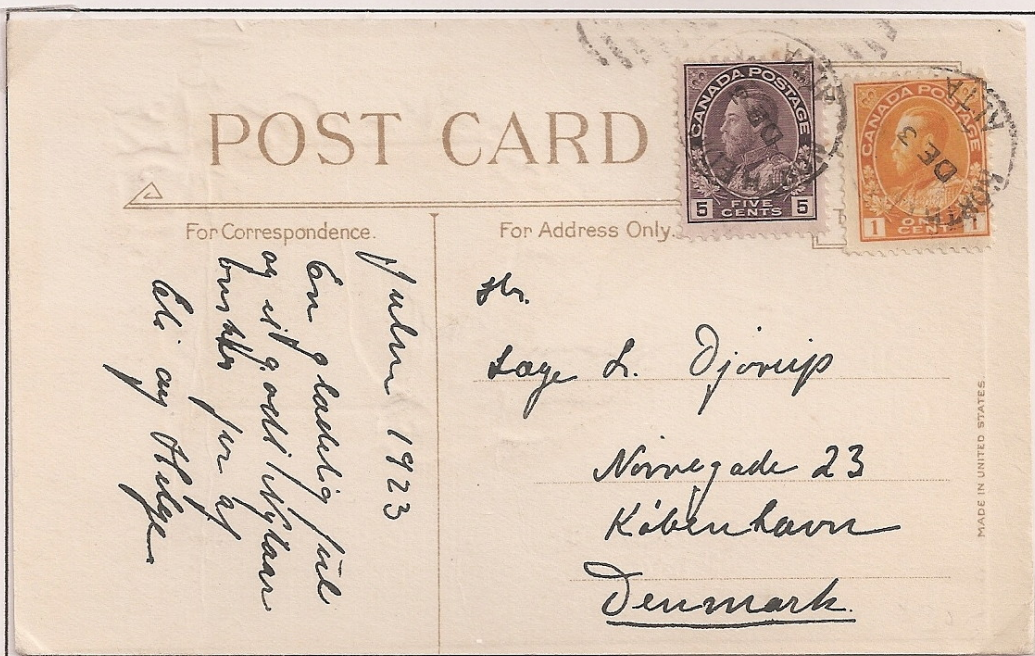 POST CARD
CANADA POSTAGE
5 FIVE CENTS 5
CANADA POSTAGE
1 ONE CENT 1
DE
ALTA
DE 3
ALTA
For Correspondence.
For Address Only.
Julen 1923
En glædelig Jul
og et godt Nytaar
ønskes for af
Eli og Helge
Hr.
Aage L. Djorup
Nørregade 23
København
Denmark
MADE IN UNITED STATES